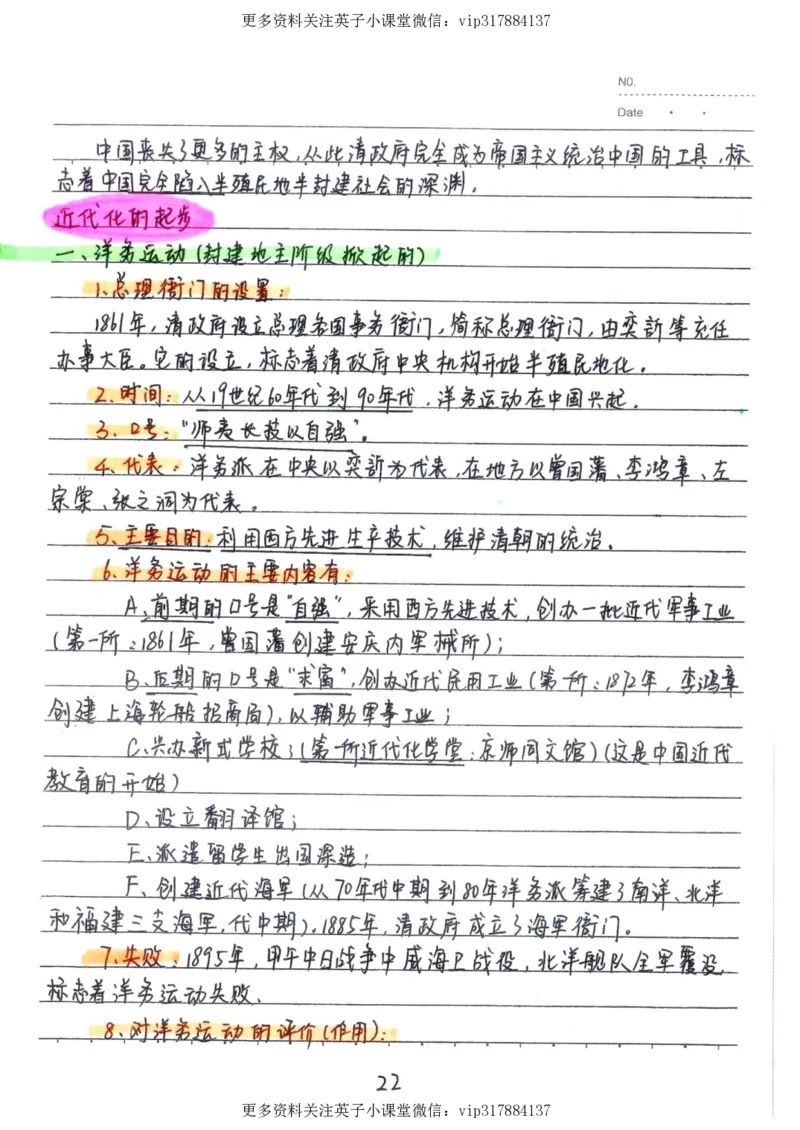 更多资料关注英子小课堂微信：vip317884137
NO.
Date
中国丧失了更多的主权，从此清政府完全成为帝国主义统治中国的工具，标
志着中国完全陷入半殖民地半封建社会的深渊。
近代化的起步
一、洋务运动（封建地主阶级掀起的）
1.总理衙门的设置：
1861年，清政府设立总理各国事务衙门，简称总理衙门，由奕訢等充任
办事大臣。它的设立，标志着清政府中央机构开始半殖民地化。
2、时间：从19世纪60年代到90年代，洋务运动在中国兴起。
3、口号：“师夷长技以自强”。
4、代表：洋务派在中央以奕訢为代表，在地方以曾国藩、李鸿章、左
宗棠、张之洞为代表。
5、主要目的：利用西方先进生产技术，维护清朝的统治。
6、洋务运动的主要内容有：
A、前期的口号是“自强”，采用西方先进技术，创办一批近代军事工业
（第一所：1861年，曾国藩创建安庆内军械所）；
B、后期的口号是“求富”，创办近代民用工业（第一所：1872年，李鸿章
创建上海轮船招商局），以辅助军事工业；
C、兴办新式学校；（第一所近代化学堂：京师同文馆）（这是中国近代
教育的开始）
D、设立翻译馆；
E、派遣留学生出国深造；
F、创建近代海军（从70年代中期到80年洋务派筹建了南洋、北洋
和福建三支海军，代中期）。1885年，清政府成立了海军衙门。
7、失败：1895年，甲午中日战争中威海卫战役，北洋舰队全军覆没，
标志着洋务运动失败。
8、对洋务运动的评价（作用）：
22
更多资料关注英子小课堂微信：vip317884137